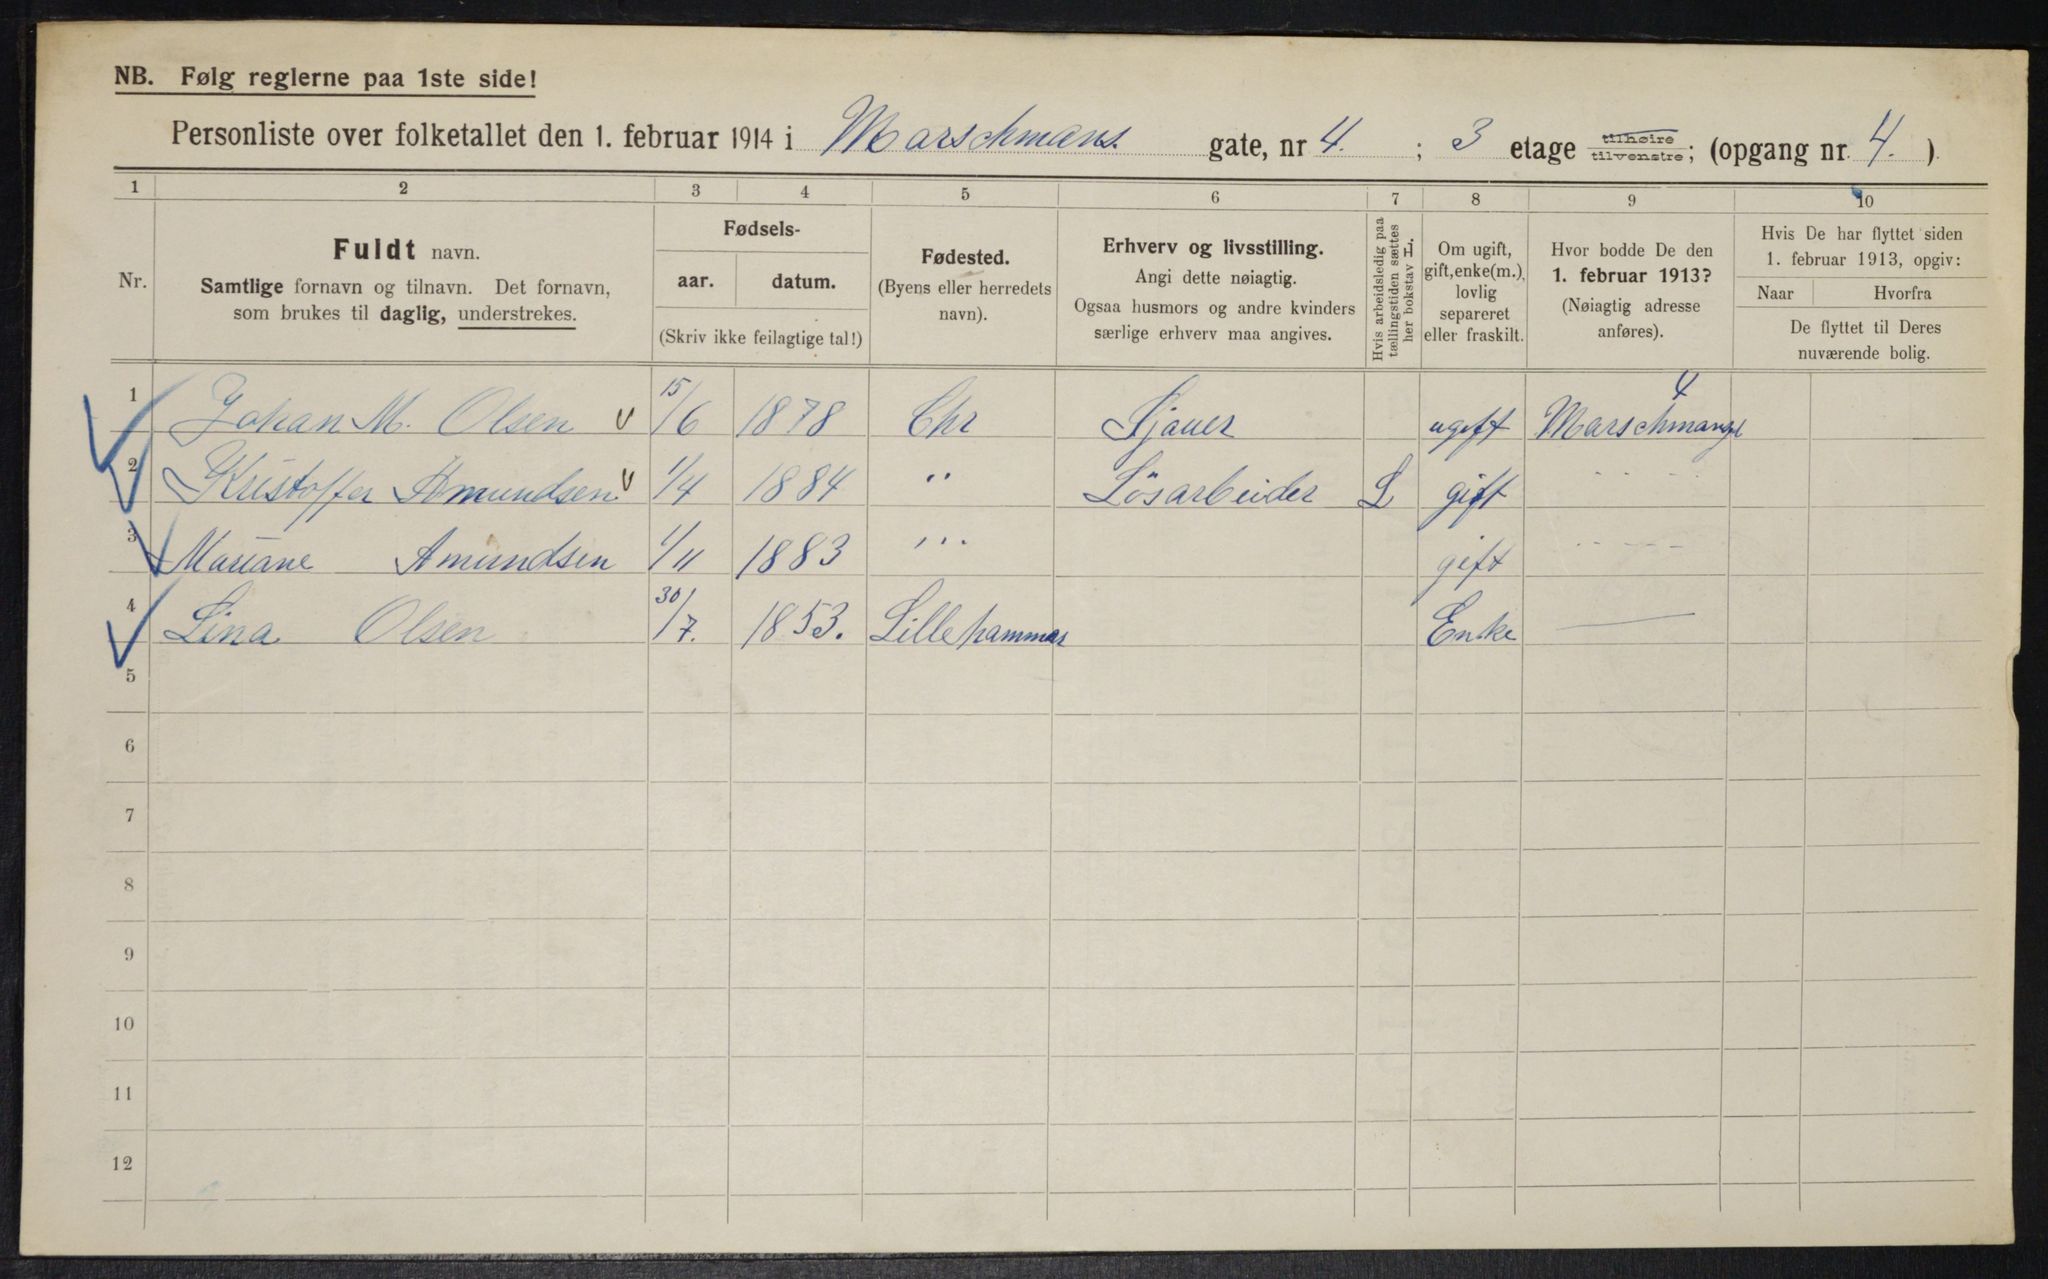 NB. Følg reglerne paa 1ste side!
Personliste over folketallet den 1. februar 1914 i Marschmans. gate, nr 4. ; 3 etage tilhøire tilvenstre; (opgang nr. 4. ).
1 2 3 4 5 6 7 8 9 10
Nr.
Fuldt navn.
Samtlige fornavn og tilnavn. Det fornavn,
som brukes til daglig, understrekes.
Fødsels-
aar. datum.
(Skriv ikke feilagtige tal!)
Fødested.
(Byens eller herredets
navn).
Erhverv og livsstilling.
Angi dette nøiagtig.
Ogsaa husmors og andre kvinders
særlige erhverv maa angives.
Hvis arbeidsledig paa
tællingstiden sættes
her bokstav L
Om ugift,
gift, enke(m.),
lovlig
separeret
eller fraskilt.
Hvor bodde De den
1. februar 1913?
(Nøiagtig adresse
anføres).
Hvis De har flyttet siden
1. februar 1913, opgiv:
Naar Hvorfra
De flyttet til Deres
nuværende bolig.
1 Johan M. Olsen 15/6 1878 Chr Sjauer ugift Marschmansgt 4
2 Kristoffer Amundsen 1/4 1884 " Lösarbeider L gift
3 Mariane Amundsen 1/11 1883 " gift
4 Lina Olsen 30/7. 1853. Lillehammer Enke
5
6
7
8
9
10
11
12